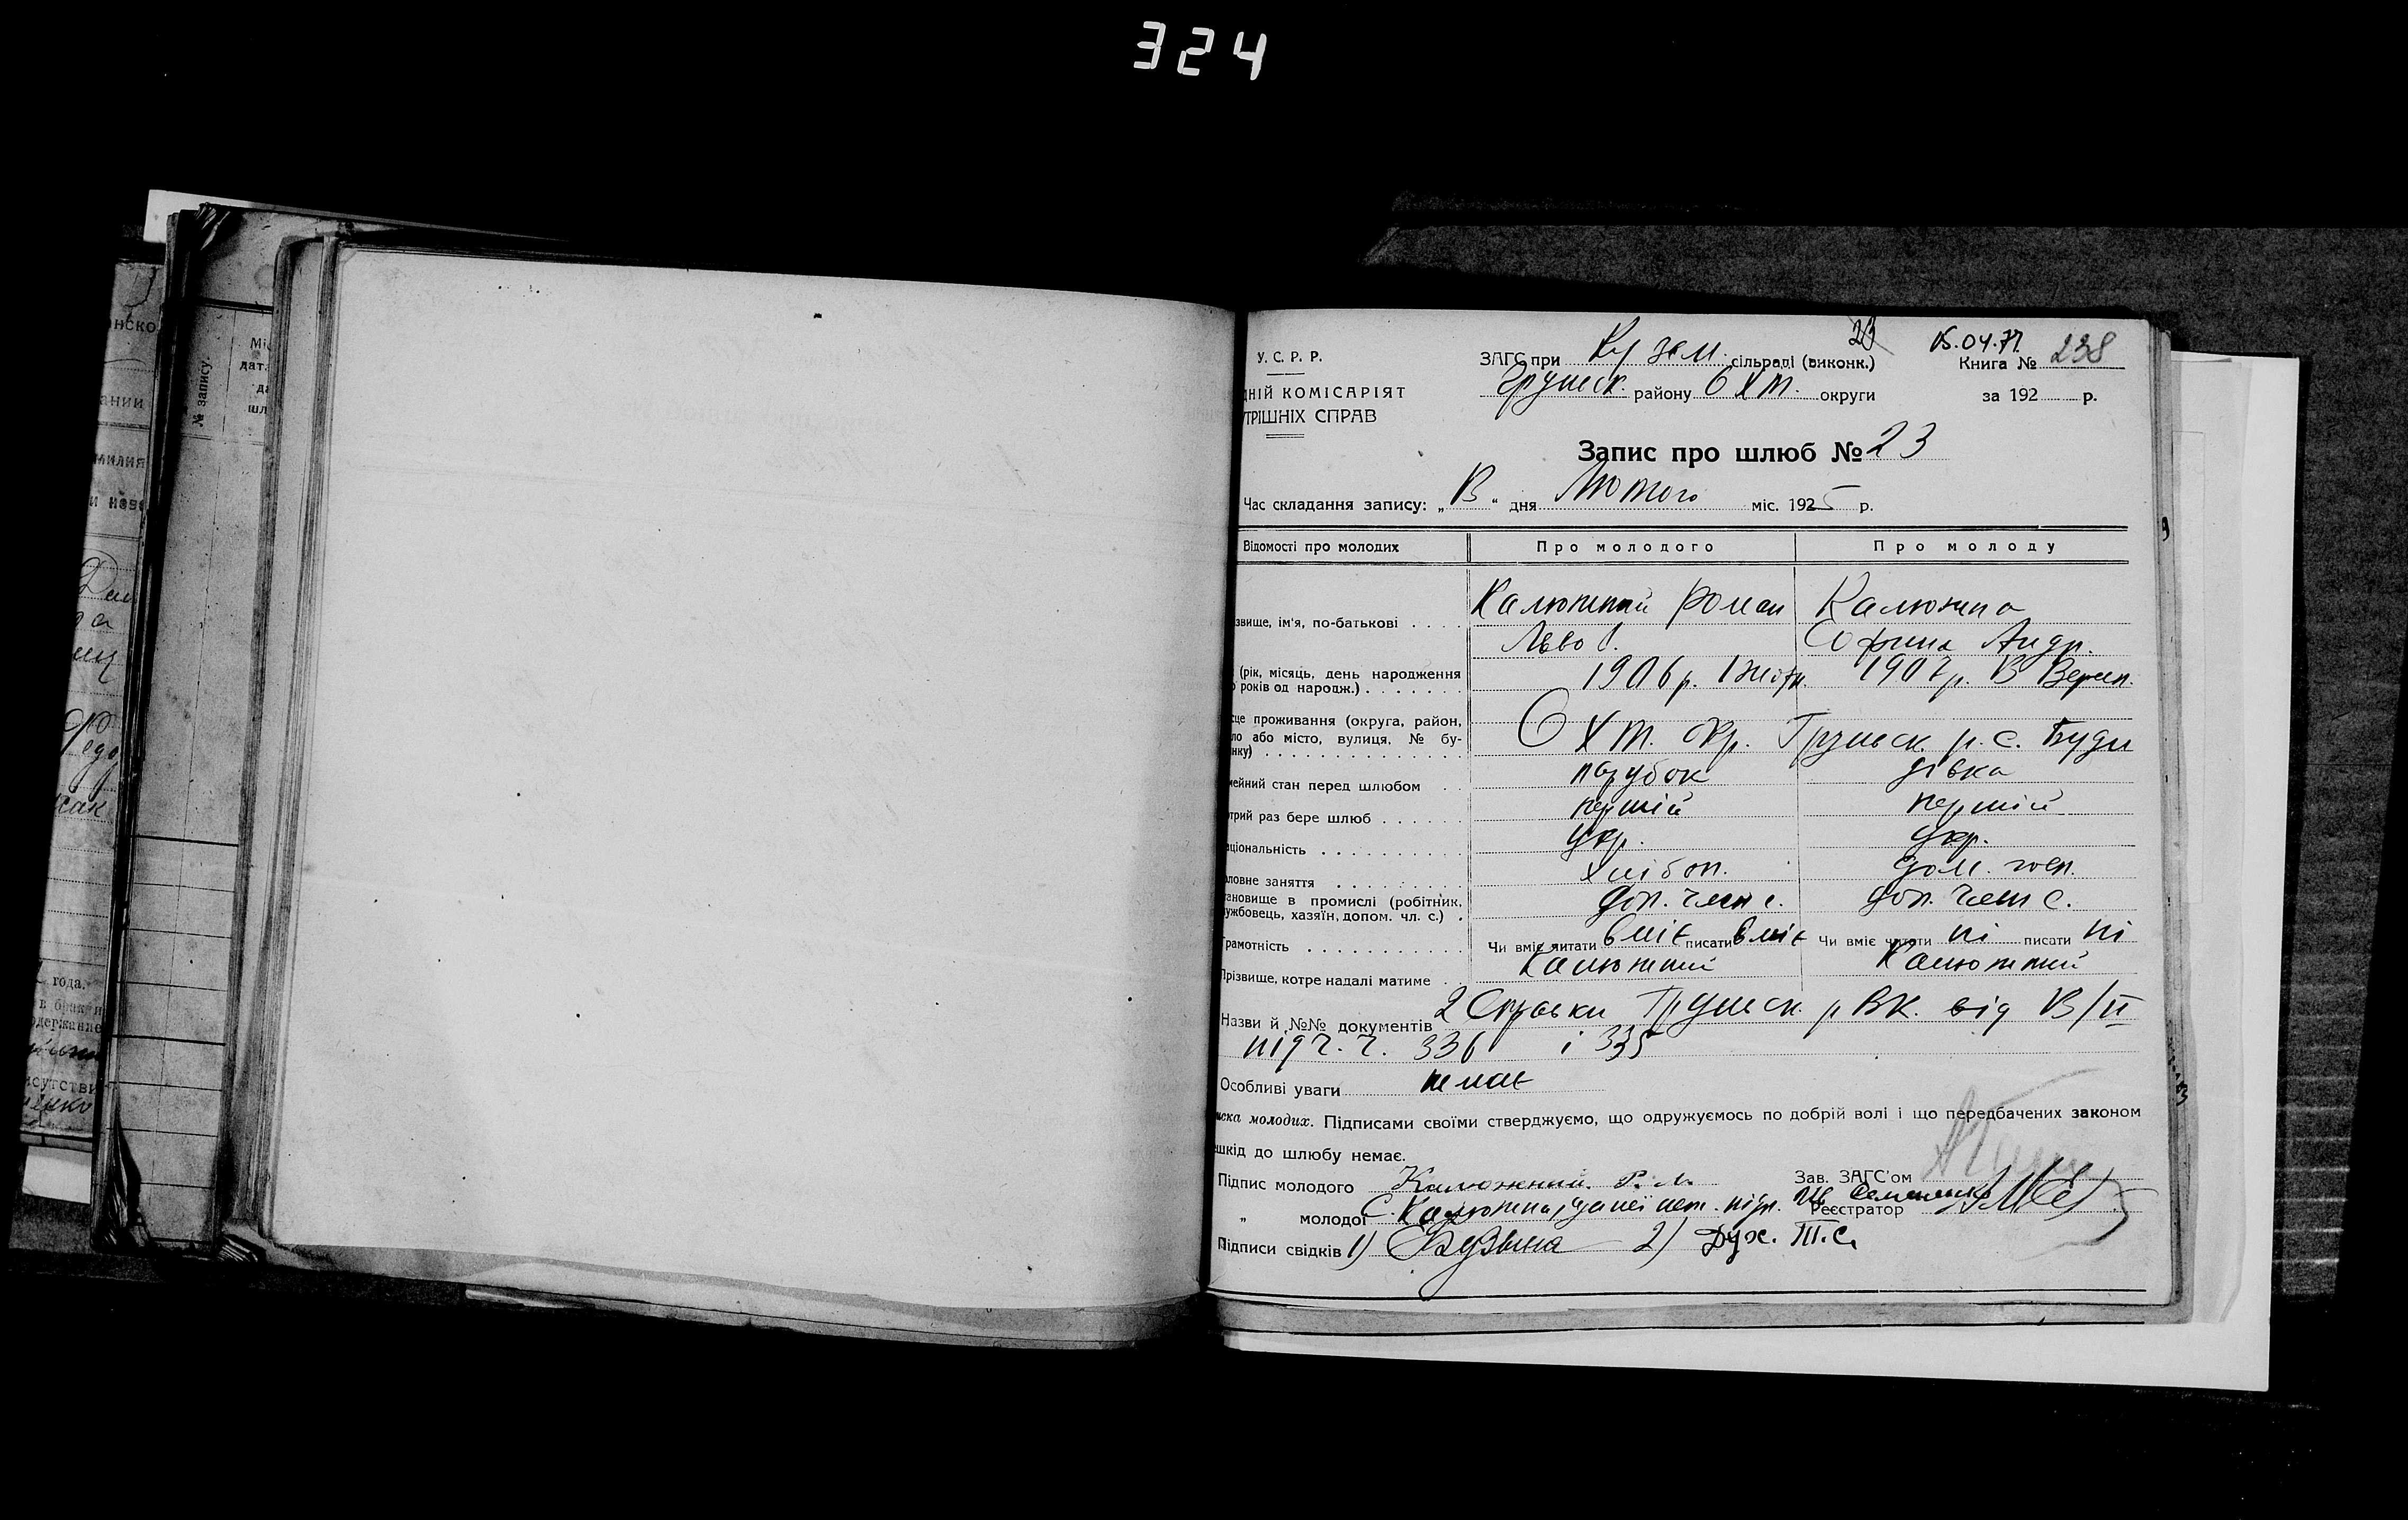 324
23
15.04.71
У. С. Р. Р.
ЗАГС при Кузем. сільраді (виконк.)
Книга № 238
ДНІЙ КОМІСАРІЯТ
Грунськ. району Охт. округи
за 192 р.
ТРІШНІХ СПРАВ
Запис про шлюб № 23
Час складання запису: „13“ дня Лютого міс. 1925 р.
Відомості про молодих
Про молодого
Про молоду
звище, ім'я, по-батькові
Калюжний Роман
Калюжна
Льво
Андр.
(рік, місяць, день народження
років од народж.)
1906 р. 1
190 р. 13 Верес.
це проживання (округа, район,
ло або місто, вулиця, № бу-
нку)
Охт. окр. Грунськ. р. с. Буди
мейний стан перед шлюбом
парубок
дівка
трий раз бере шлюб
першій
першій
аціональність
Укр.
Укр.
ловне заняття
Хлібоп.
Дом. госп.
тановище в промислі (робітник,
ужбовець, хазяїн, допом. чл. с.)
Доп. член с.
Доп. член с.
Грамотність
Чи вміє читати вміє писати вміє
Чи вміє читати ні писати ні
Прізвище, котре надалі матиме
Калюжний
Калюжний
Назви й №№ документів 2 Справки Грунськ. рВК. від 13/II
під ч. ч. 336 і 335
Особливі уваги немає
иска молодих. Підписами своїми стверджуємо, що одружуємось по добрій волі і що передбачених законом
шкід до шлюбу немає.
Підпис молодого Калюжний. Р. Л.
Зав. ЗАГС'ом
„ молодої С. Калюжна, за неї неп. підп.
Реєстратор
Підписи свідків 1)
2) Дух. Т. С.
№ запису.
Мі
дат
да
шл
нско
ании
милия
и нов
года.
в брак
одержание
исутстви